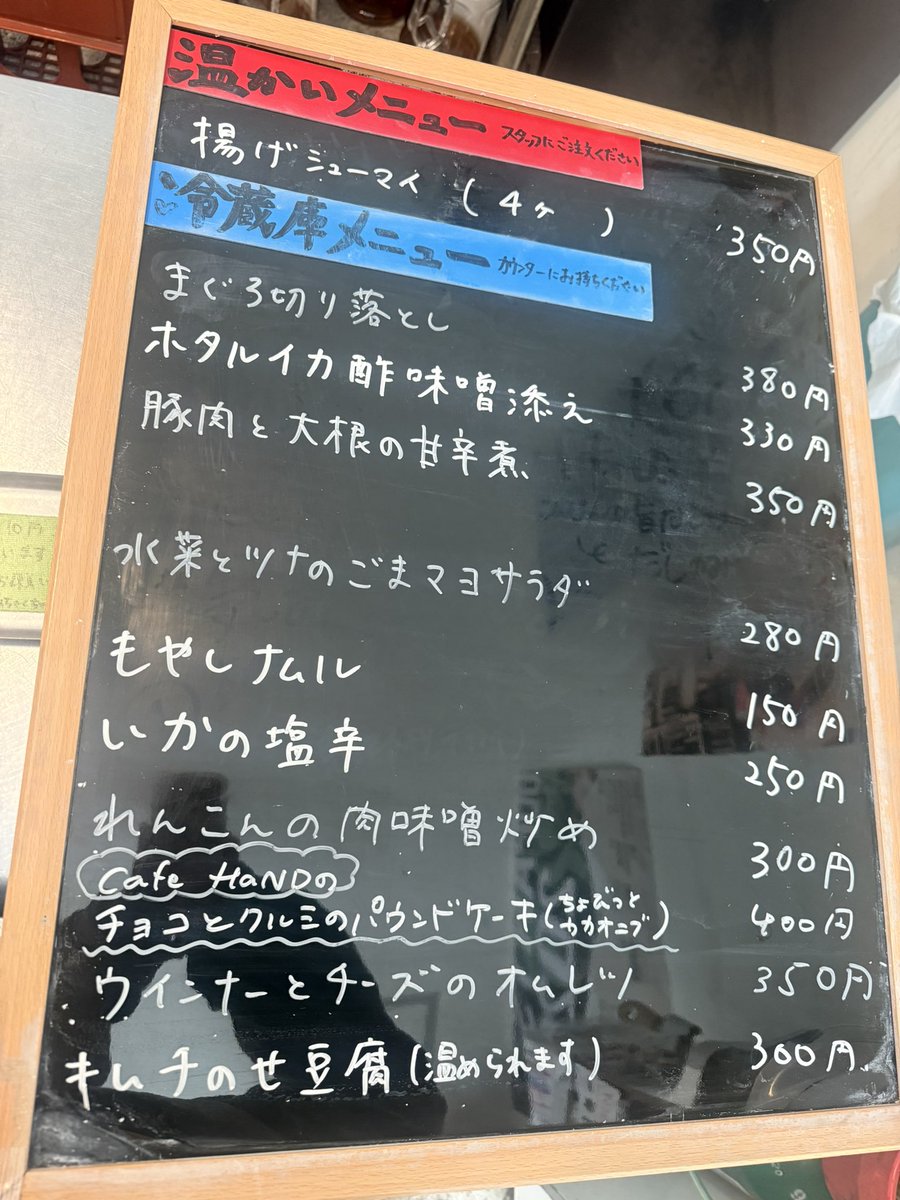 温かいメニュー スタッフにご注文ください
揚げシューマイ (4ヶ) 350円
冷蔵庫メニュー カウンターにお持ちください
まぐろ切り落とし 380円
ホタルイカ酢味噌添え 330円
豚肉と大根の甘辛煮 350円
水菜とツナのごまマヨサラダ 280円
もやしナムル 150円
いかの塩辛 250円
れんこんの肉味噌炒め 300円
Cafe HaNDの
チョコとクルミのパウンドケーキ(ちょびっとカカオニブ) 400円
ウインナーとチーズのオムレツ 350円
キムチのせ豆腐(温められます) 300円
10円